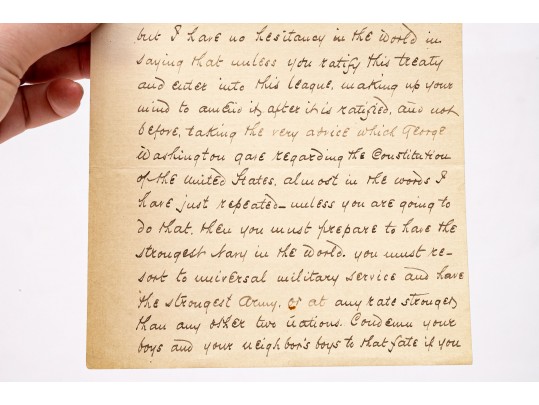 but I have no hesitancy in the world in
saying that unless you ratify this treaty
and enter into this league, making up your
mind to amend it, after it is ratified, and not
before, taking the very advice which George
Washington gave regarding the Constitution
of the United States, almost in the words I
have just repeated - unless you are going to
do that, then you must prepare to have the
strongest Navy in the world. you must re-
sort to universal military service and have
the strongest Army, or at any rate stronger
than any other two nations. Condemn your
boys and your neighbor's boys to that fate if you